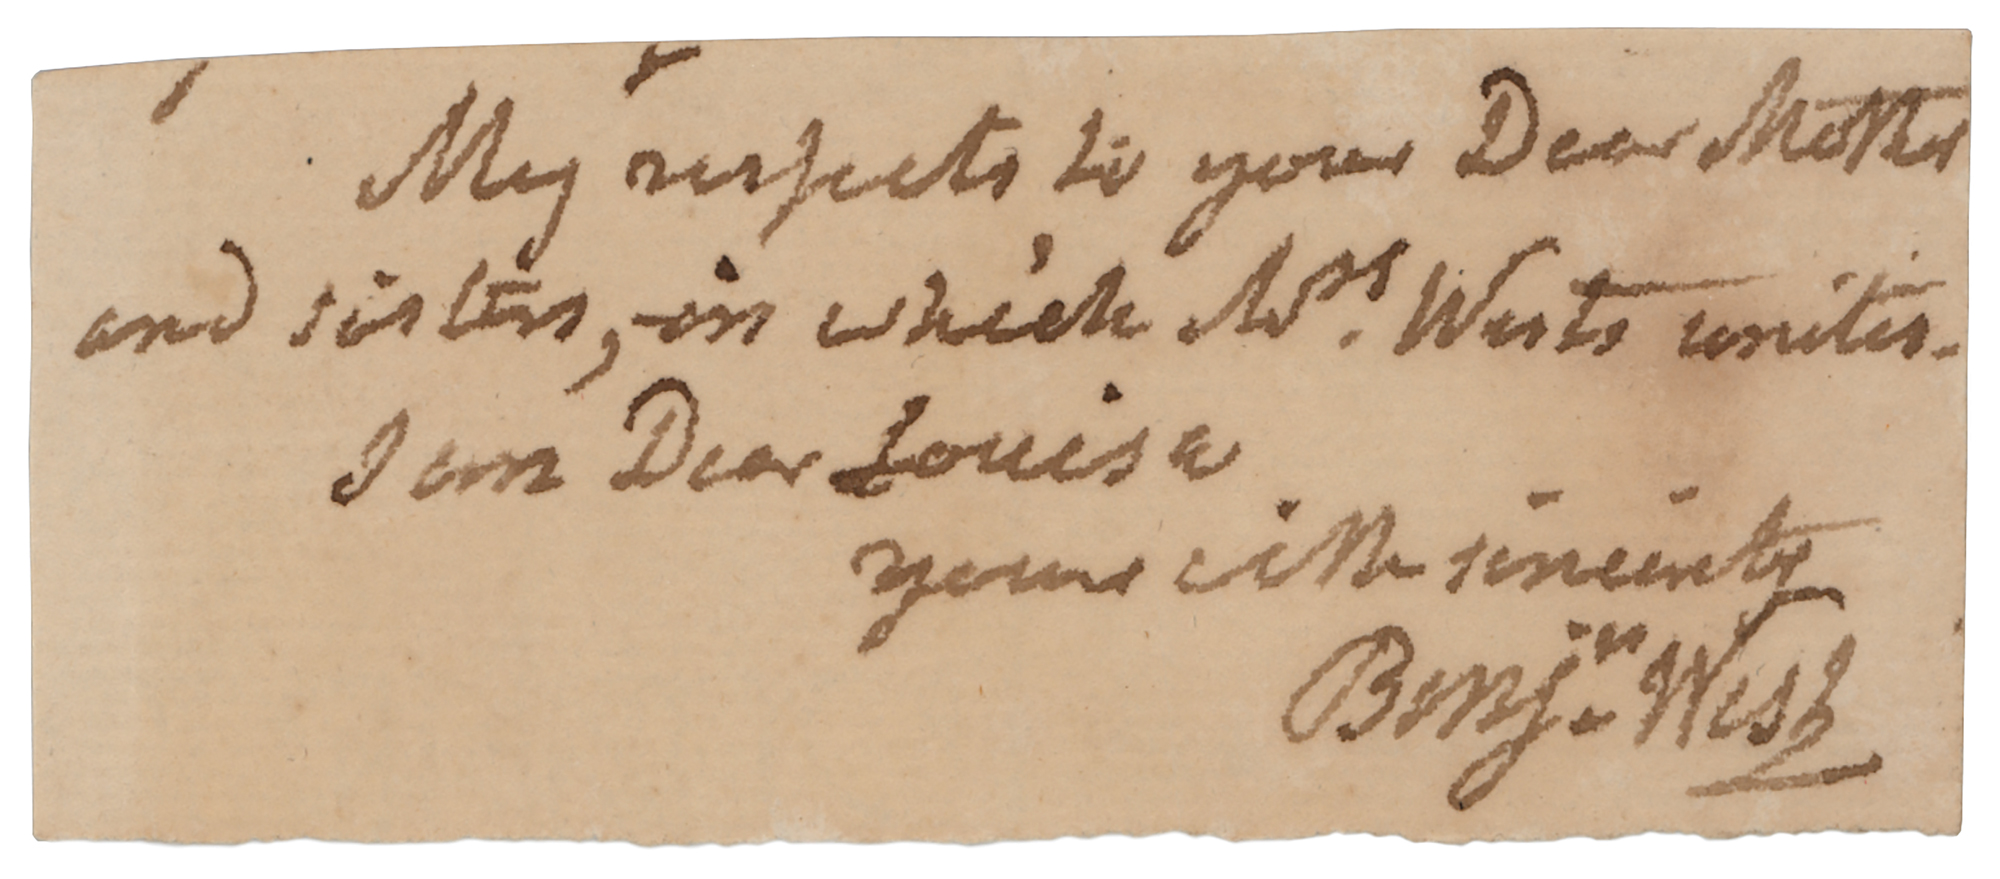 My respects to your Dear Mother
and sisters, in which Mrs. Wests unites.
I am Dear Louisa
your with sincerity
Benjn. West